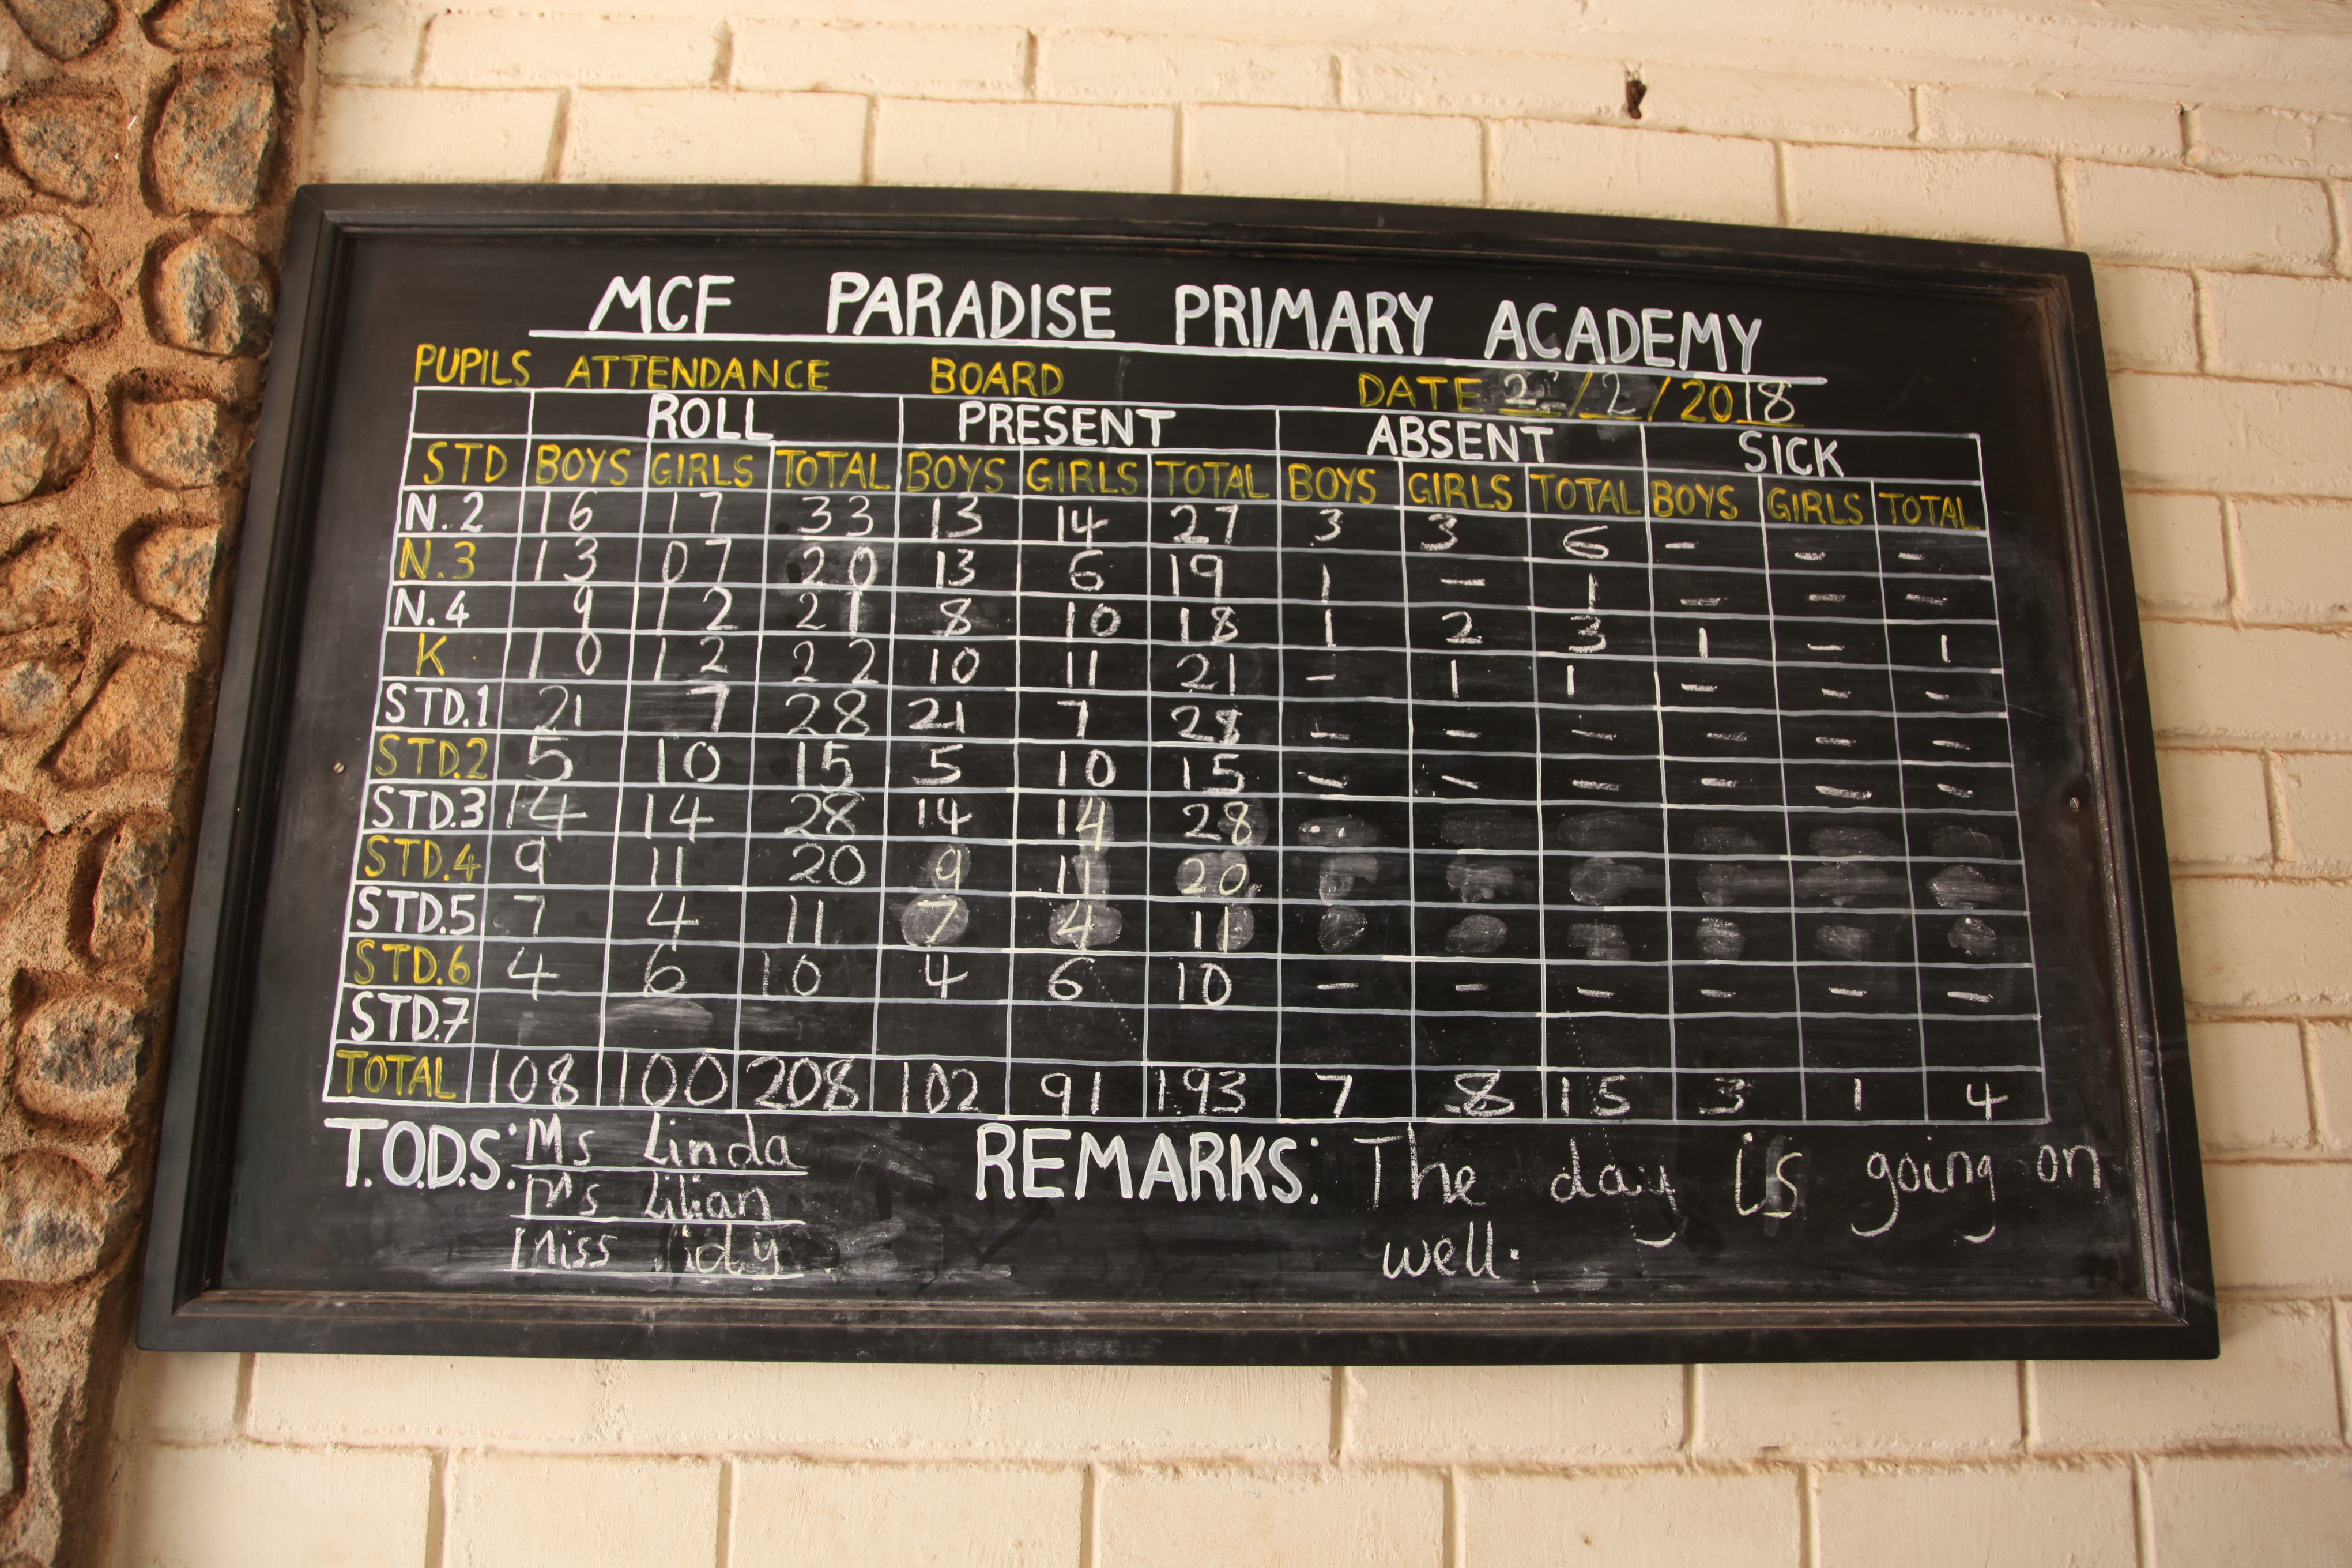 MCF PARADISE PRIMARY ACADEMY
PUPILS ATTENDANCE BOARD DATE /2/2018
ROLL PRESENT ABSENT SICK
STD BOYS GIRLS TOTAL BOYS GIRLS TOTAL BOYS GIRLS TOTAL BOYS GIRLS TOTAL
N.2 16 17 33 13 14 27 3 3 6 - - -
N.3 13 07 20 13 6 19 1 - 1 - - -
N.4 9 12 21 8 10 18 1 2 3 1 - 1
K 10 12 22 10 11 21 - 1 1 - - -
STD.1 21 7 28 21 7 28 - - - - - -
STD.2 5 10 15 5 10 15 - - - - - -
STD.3 14 14 28 14 14 28
STD.4 9 11 20 9 11 20
STD.5 7 4 11 7 4 11
STD.6 4 6 10 4 6 10 - - - - - -
STD.7
TOTAL 108 100 208 102 91 193 7 8 15 3 1 4
T.O.D.S: Ms Linda REMARKS: The day is going on
Ms Lilian well.
Miss